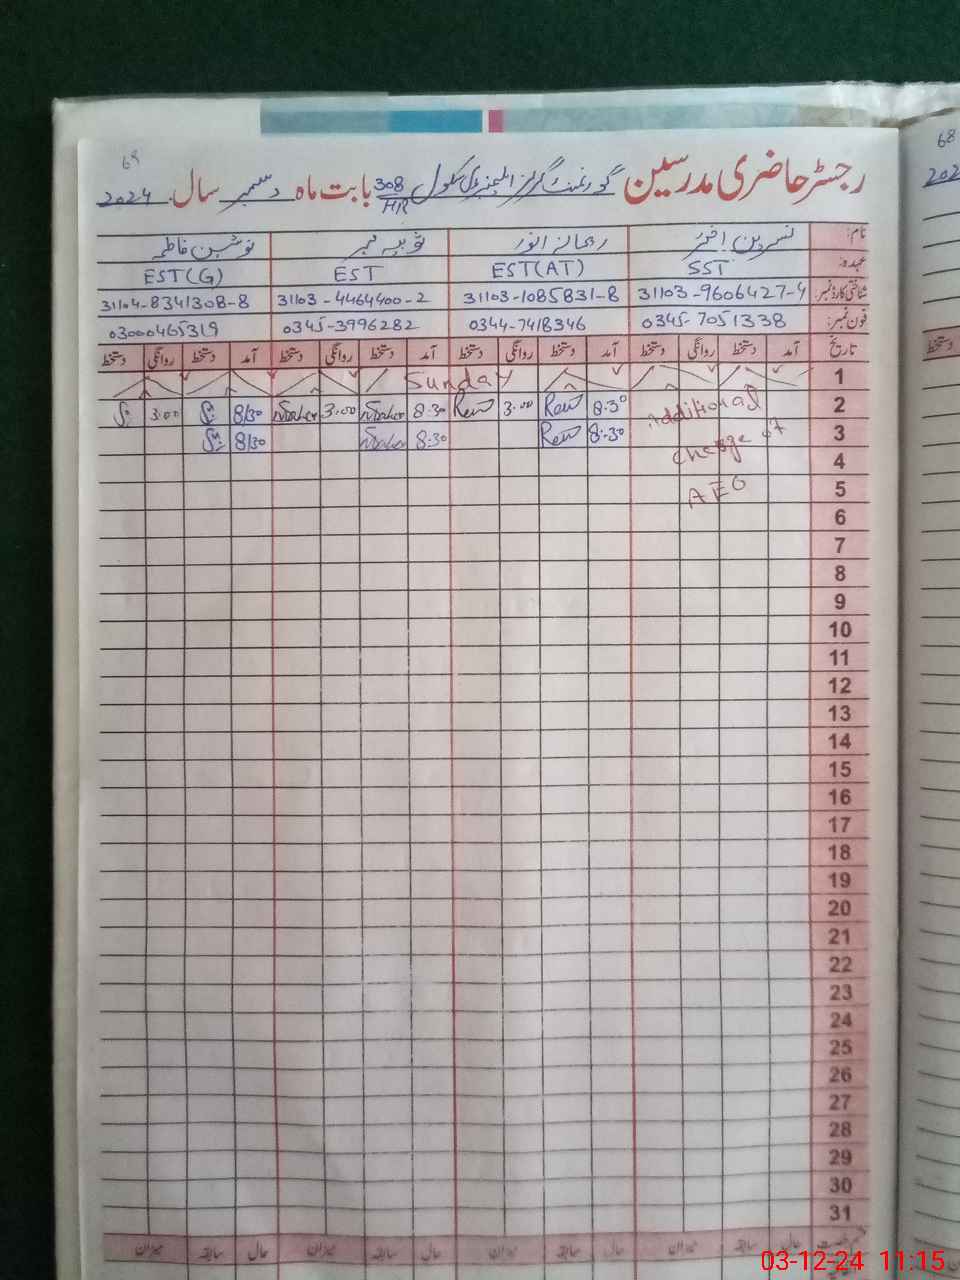 69
رجسٹر حاضری مدرسین گورنمنٹ گرلز ایلیمنٹری سکول 308/HR بابت ماہ دسمبر سال 2024
نام: نسرین اختر ریحانہ انور ثوبیہ نوشین فاطمہ
عہدہ: SST EST(AT) EST EST(G)
شناختی کارڈ نمبر: 31103-9606427-4 31103-1085831-8 31103-4464400-2 31104-8341308-8
فون نمبر: 0345-7051338 0344-7418346 0345-3996282 03000465319
تاریخ آمد دستخط روانگی دستخط آمد دستخط روانگی دستخط آمد دستخط روانگی دستخط آمد دستخط روانگی دستخط
1 Sunday
2 Additional 8.30 3.00 8.30 3.00 8/30 3.00
3 Charge of 8.30 8.30 8/30
4
5 AEO
6
7
8
9
10
11
12
13
14
15
16
17
18
19
20
21
22
23
24
25
26
27
28
29
30
31
حال سابقہ میزان حال سابقہ میزان حال سابقہ میزان حال سابقہ میزان
68
202
دستخط
03-12-24 11:15